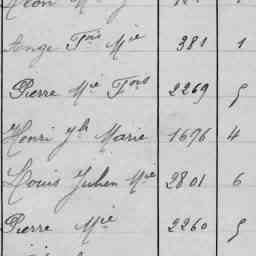 Ange Fois Mie 381 1
Pierre Mie Fois 2269 5
Henri Jh Marie 1676 4
Louis Julien Mie 2801 6
Pierre Mie 2260 5